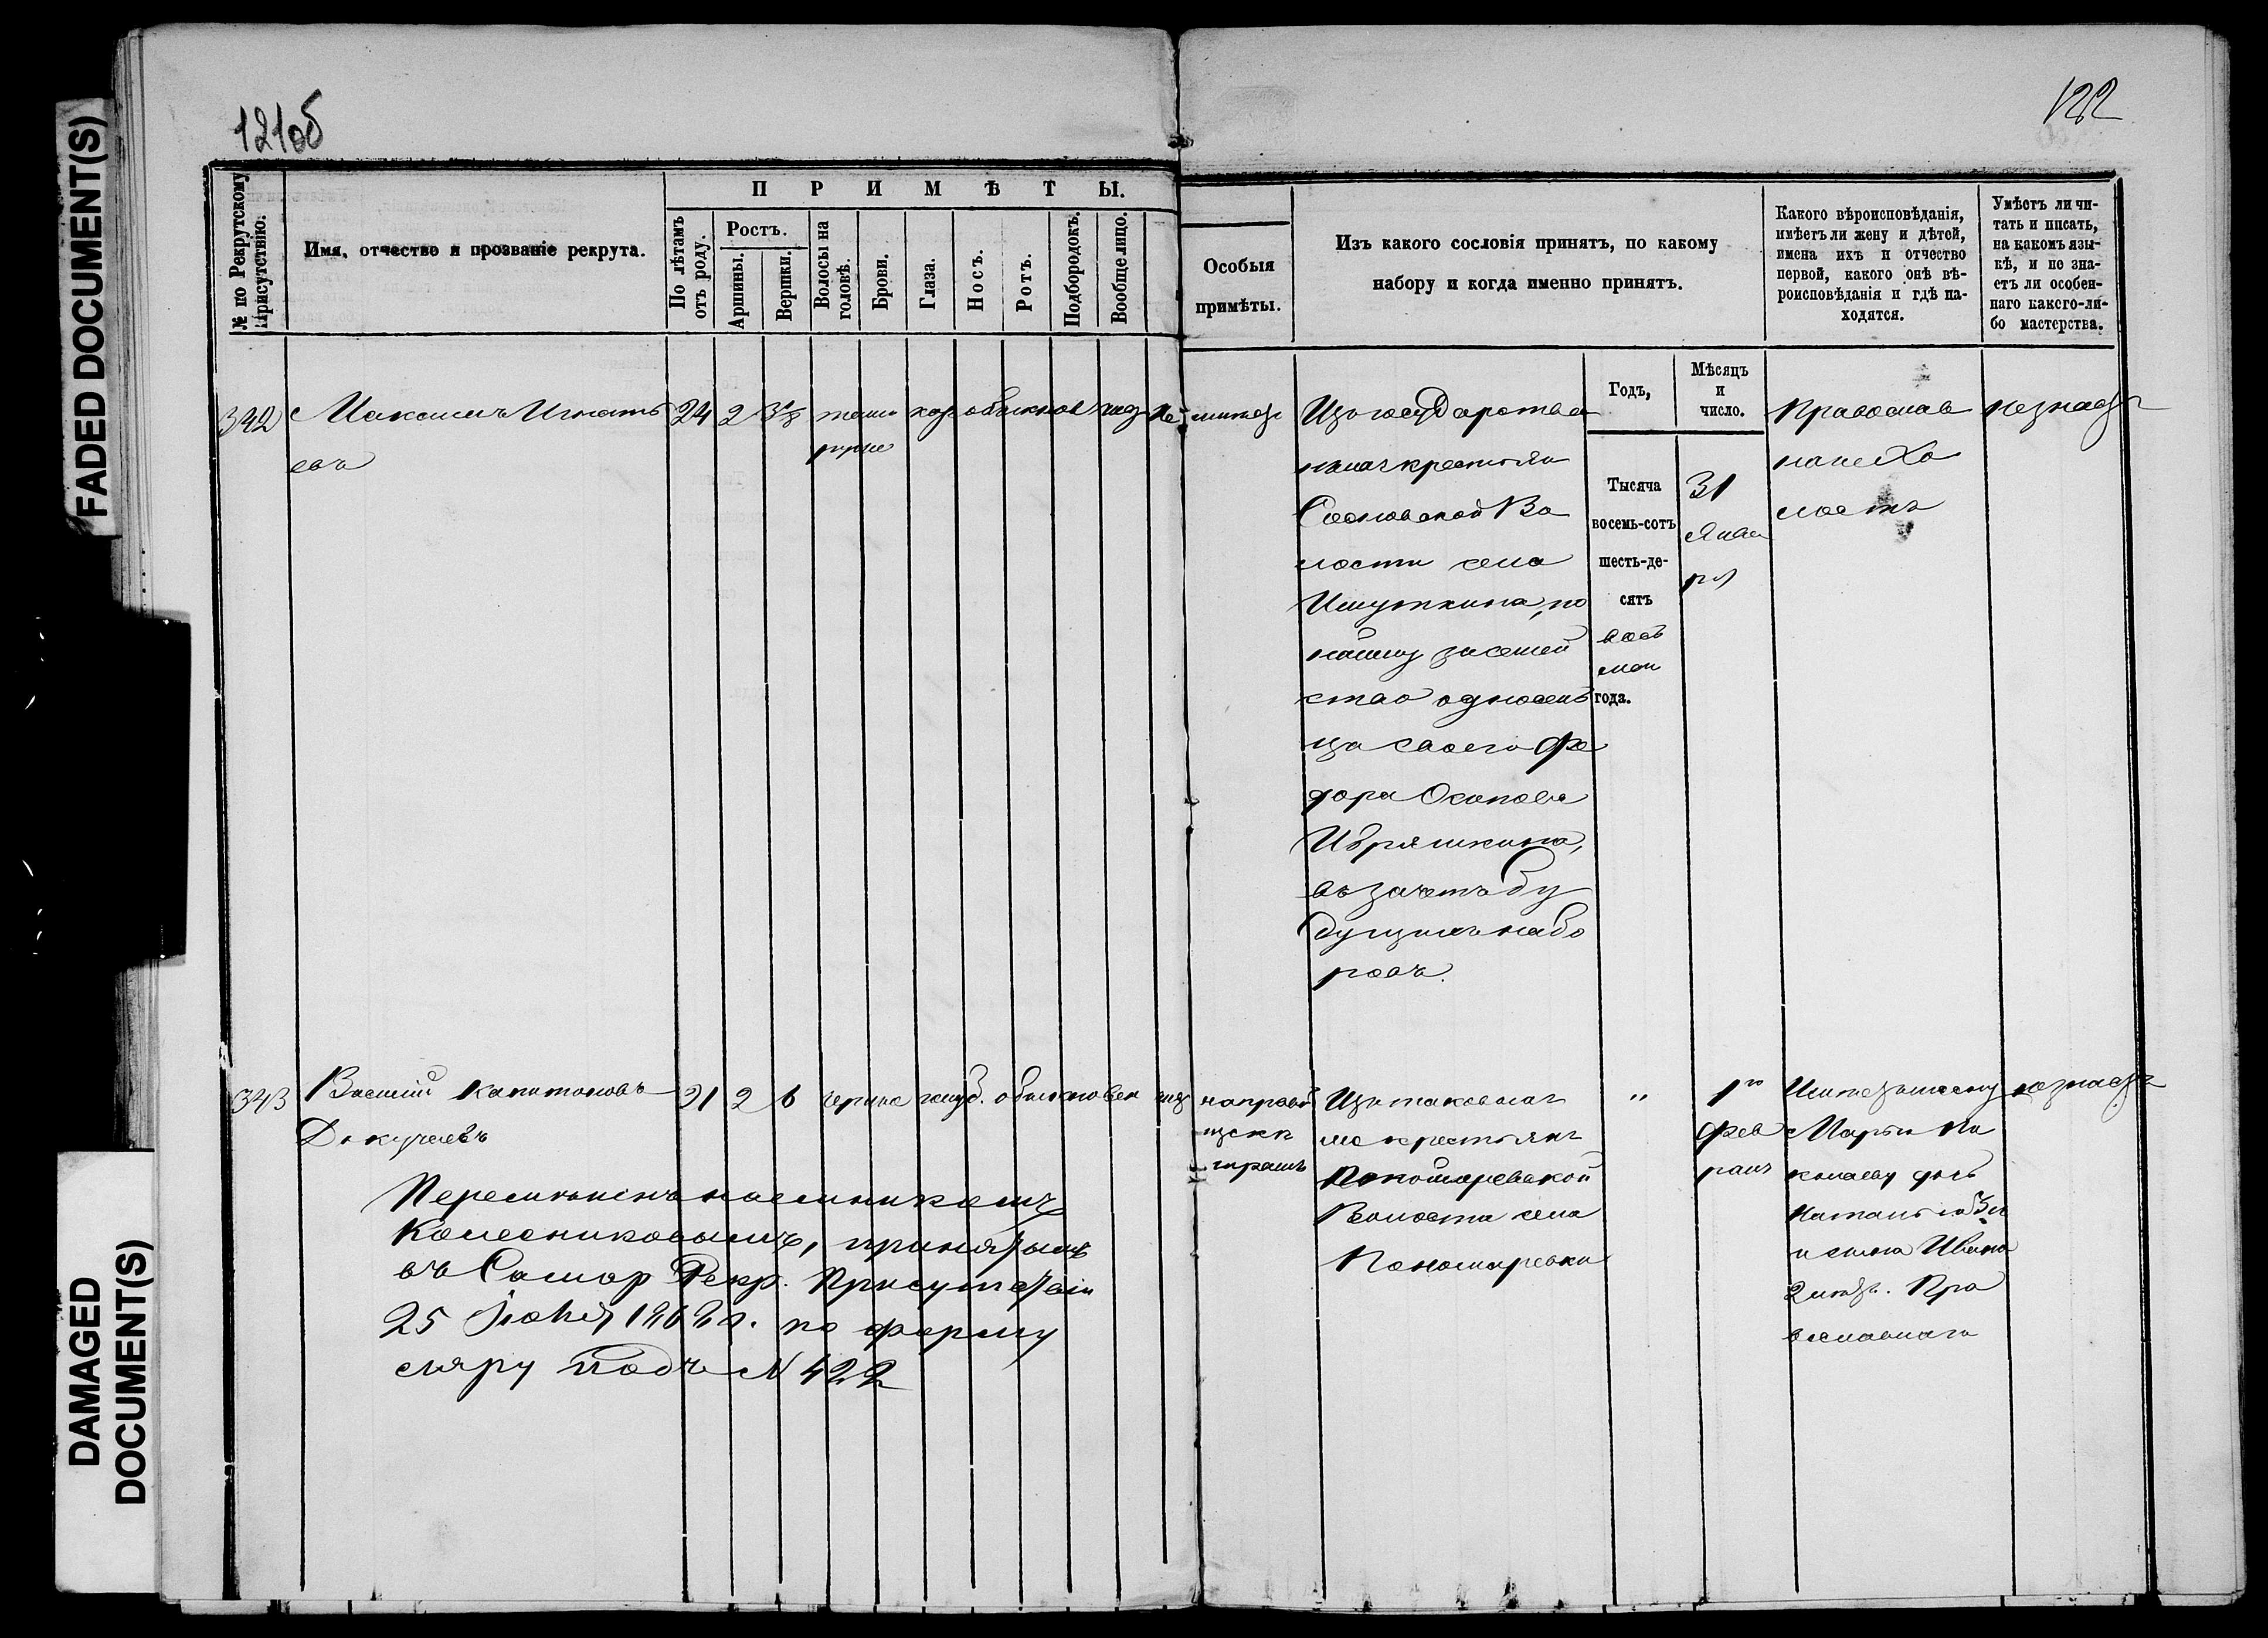 FADED DOCUMENT(S)
DAMAGED
DOCUMENT(S)
121об
122
№ по Рекрутскому
Присутствію.
Имя, отчество и прозваніе рекрута.
ПРИМѢТЫ.
По лѣтамъ
отъ роду.
Ростъ.
Аршины.
Вершки.
Волосы на
головѣ.
Брови.
Глаза.
Носъ.
Ротъ.
Подбородокъ.
Вообще лицо.
Особыя
примѣты.
Изъ какого сословія принятъ, по какому
набору и когда именно принятъ.
Какого вѣроисповѣданія,
имѣетъ ли жену и дѣтей,
имена ихъ и отчество
первой, какого онѣ вѣ-
роисповѣданія и гдѣ на-
ходятся.
Умѣетъ ли чи-
тать и писать,
на какомъ язы-
кѣ, и не зна-
етъ ли особен-
наго какого-ли-
бо мастерства.
Годъ,
Мѣсяцъ
и
число.
342
Максимъ Игнать
евъ
24 2 3⅘ темно
русые
кар обыкнов чис
не имѣетъ
Изъ государстве
ныхъ крестьян
Сосновской Во
лости села
Ишуткина, по
найму за семей
ство односемъ
ца своего Фе
дора Осипова
Ибряшкина,
въ зачетъ бу
дущихъ набо
ровъ.
Тысяча
восемь-сотъ
шесть-де-
сятъ
вось
мой
года.
31
Янва
ря
Православ
наго Хо
лостъ
незнаетъ
343
Василій Капитоновъ
Докучаевъ
21 2 6 черные голуб. обыкновен чис
на правой
щекѣ
шрамъ
Изъ таковыхъ
же крестьянъ
Пономаревской
Волости села
Пономаревки
"
1го
Фев
раля
Имѣетъ жену
Марью Ни
колаеву дочь
Наталью 3х
и сына Ивана
2 лѣтъ. Пра
вославнаго
незнаетъ
Перемѣненъ наемникомъ
Колесниковымъ, принятымъ
въ Самар Рекр. Присутствіи
25 Іюня 1868 г. по форму
ляру подъ № 422